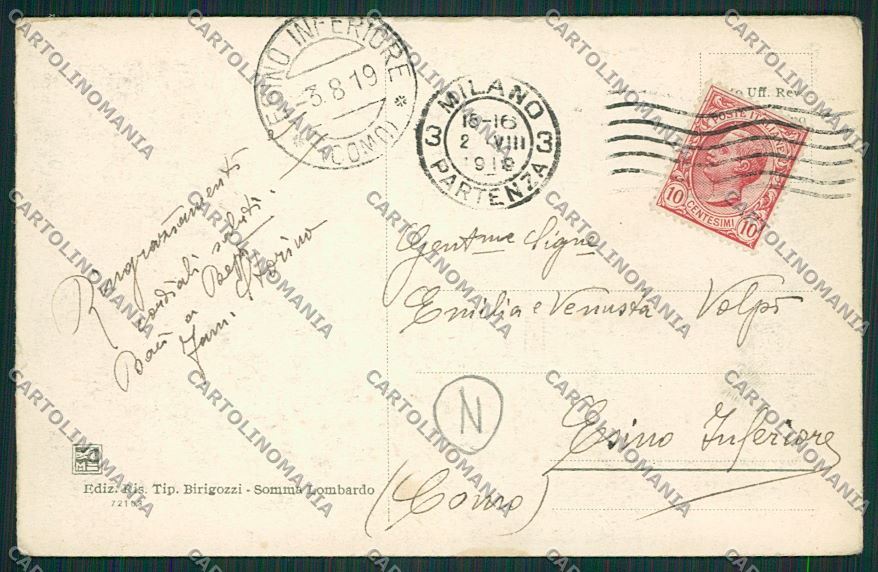 ESINO INFERIORE
-3.8 19
*(COMO)*
MILANO
15-16
2 VIII
1919
3 3
PARTENZA
Uff. Rev.
POSTE ITALIANE
10 CENTESIMI 10
Ringraziamenti
cordiali saluti.
Baci a Beppi
Fam.
Gentme Signe
Emilia e Venusta Volpi
N
Esino Inferiore
(Como)
Ediz. Ris. Tip. Birigozzi - Somma Lombardo
CARTOLINOMANIA